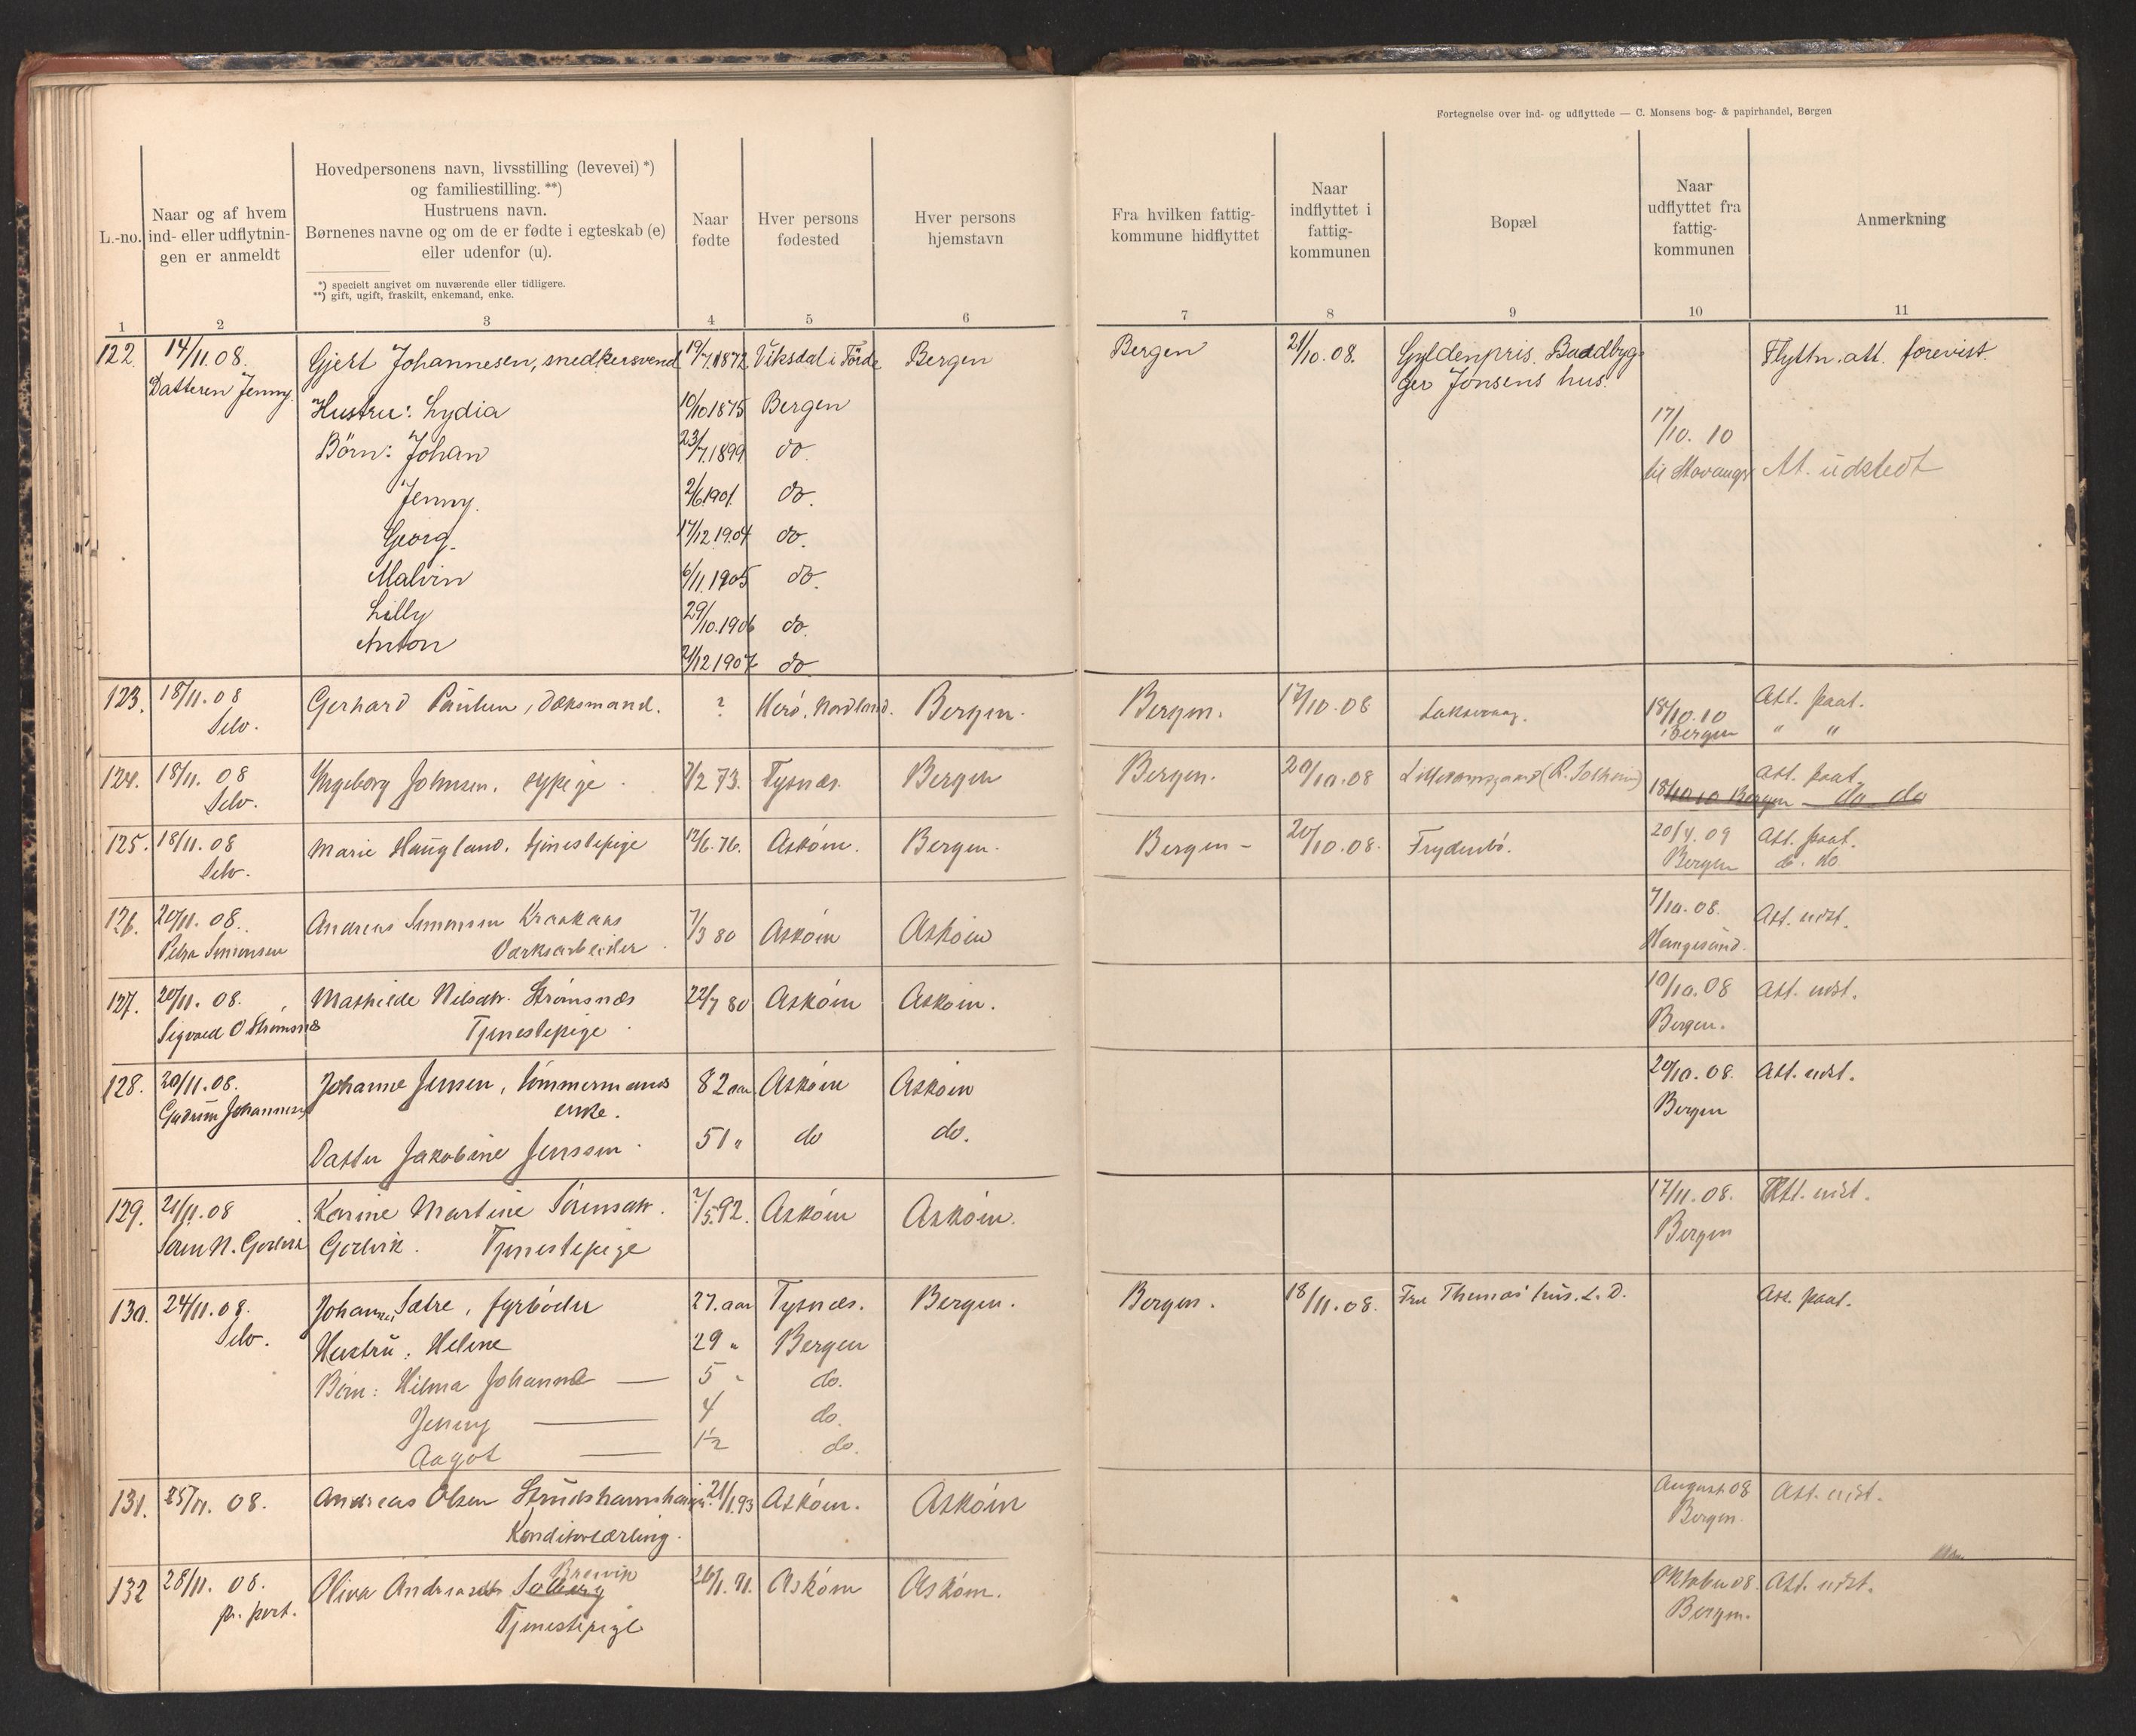 Fortegnelse over ind- og udflyttede — C. Monsens bog- & papirhandel, Bergen
L.-no.
Naar og af hvem
ind- eller udflytnin-
gen er anmeldt
Hovedpersonens navn, livsstilling (levevei) *)
og familiestilling. **)
Hustruens navn.
Børnenes navne og om de er fødte i egteskab (e)
eller udenfor (u).
*) specielt angivet om nuværende eller tidligere.
**) gift, ugift, fraskilt, enkemand, enke.
Naar
fødte
Hver persons
fødested
Hver persons
hjemstavn
Fra hvilken fattig-
kommune hidflyttet
Naar
indflyttet i
fattig-
kommunen
Bopæl
Naar
udflyttet fra
fattig-
kommunen
Anmerkning
1 2 3 4 5 6 7 8 9 10 11
122. 14/11.08. Gjert Johannesen, snedkersvend 19/7.1872 Viksdal i Förde Bergen Bergen 21/10.08. Gyldenpris. Baadbyg- Flyttn. att. forevist.
Datteren Jenny. ger Jonsens hus.
Hustru: Lydia 10/10 1875 Bergen
Börn: Johan 23/7.1899 do. 17/10. 10
til Stavanger At. udstedt
Jenny. 2/6.1901. do.
Georg. 17/12.1904 do.
Malvin 6/11.1905 do.
Lilly 29/10.1906 do.
Anton 21/12 1907 do
123. 18/11.08 Gerhard Paulsen, Dæksmand. ? Herö, Nordland. Bergen. Bergen. 17/10.08 Laksevaag. 18/10.10 Att. paat.
Selv. Bergen " "
124. 18/11. 08 Ingeborg Johnsen, sypige 7/2 73. Tysnæs. Bergen Bergen. 20/10.08 (R. Solheim) Att. paat.
Selv. 18/10 10 Bergen — do do
125. 18/11.08 Marie Haugland, tjenestepige 12/6.76. Asköen. Bergen. Bergen — 20/10.08. Frydenbö. 20/4.09 Att. paat.
Selv. Bergen do. do
126. 20/11.08. Andreas Simonsen Kraakaas 7/3 80 Asköen Asköen 7/10.08. Att. udst.
Petra Simonsen Værksarbeider Haugesund.
127. 20/11.08. Mathilde Nilsdtr. Strömsnæs 22/7 80 Asköen Asköen. 10/10.08 Att. udst.
Sigvald O Strömsnæs Tjenestepige Bergen.
128. 20/11.08. Johanne Jensen, tömmermands 82 aar Asköen Asköen 20/10.08. Att. udst.
Gudrun Johannesen enke. Bergen
Datter Jakobine Jenssen 51 " do do.
129. 21/11.08 Karine Martine Sörensdtr. 7/5.92. Asköen Asköen. 17/11.08. Att. udst.
Sören N. Godvik Godvik. Tjenestepige Bergen
130. 24/11.08. Johannes Sætre, fyrböder 27. aar Tysnæs. Bergen. Bergen. 18/11.08. Fru Thomas' hus. L. D. Att. paat.
Selv. Hustru: Helene 29 " Bergen
Börn: Hilma Johanne — 5 " do.
Jenny — 4 do.
Aagot — 1½ do.
131. 25/11. 08. Andreas Olsen Strudshavnshaugen. 21/1.93 Asköen. Asköen August 08 Att. udst.
Konditorlærling. Bergen.
132 28/11. 08. Oliva Andreasdtr Solberg Breivik 26/1.91. Asköen Asköen. Oktober 08. Att. udst.
pr. port. Tjenestepige Bergen.